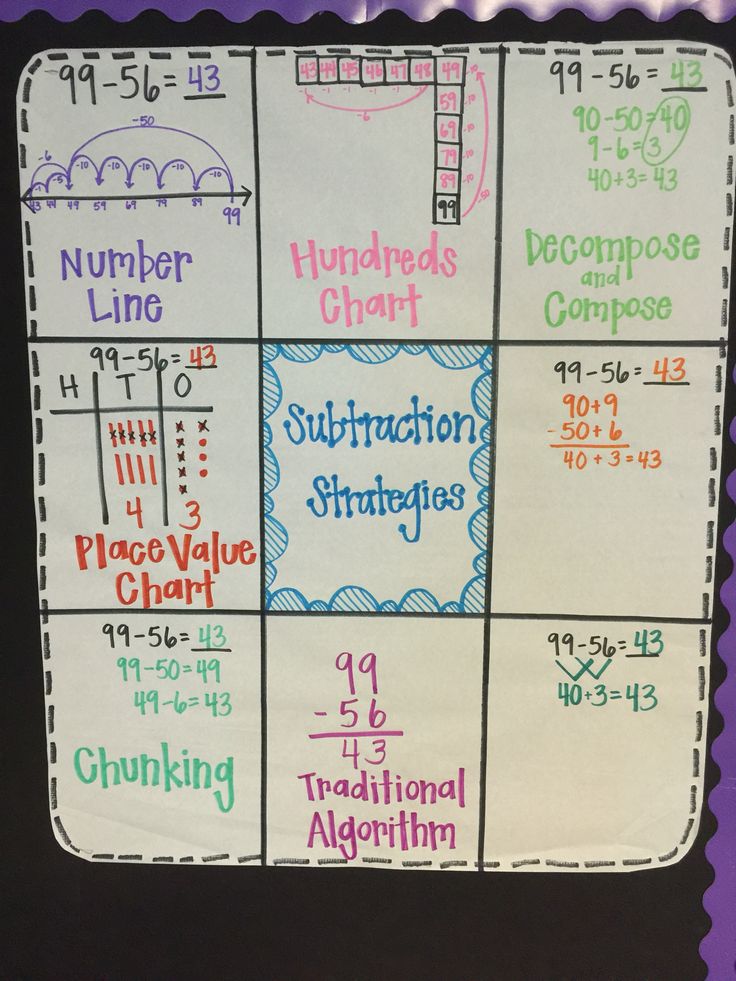 99-56=43
-50
-6
-1 -5 -10 -10 -10 -10 -10
43 44 49 59 69 79 89 99
Number
Line
43 44 45 46 47 48 49 -10
-1 -1 -1 -1 -1
-6
59
69 -10
79 -10
89 -10
99 -50
Hundreds
Chart
99-56=43
90-50=40
9-6=3
40+3=43
Decompose
and
Compose
99-56=43
H T O
4 3
Place Value
Chart
Subtraction
Strategies
99-56=43
90+9
-50+6
40+3=43
99-56=43
99-50=49
49-6=43
Chunking
99
-56
43
Traditional
Algorithm
99-56=43
40+3=43